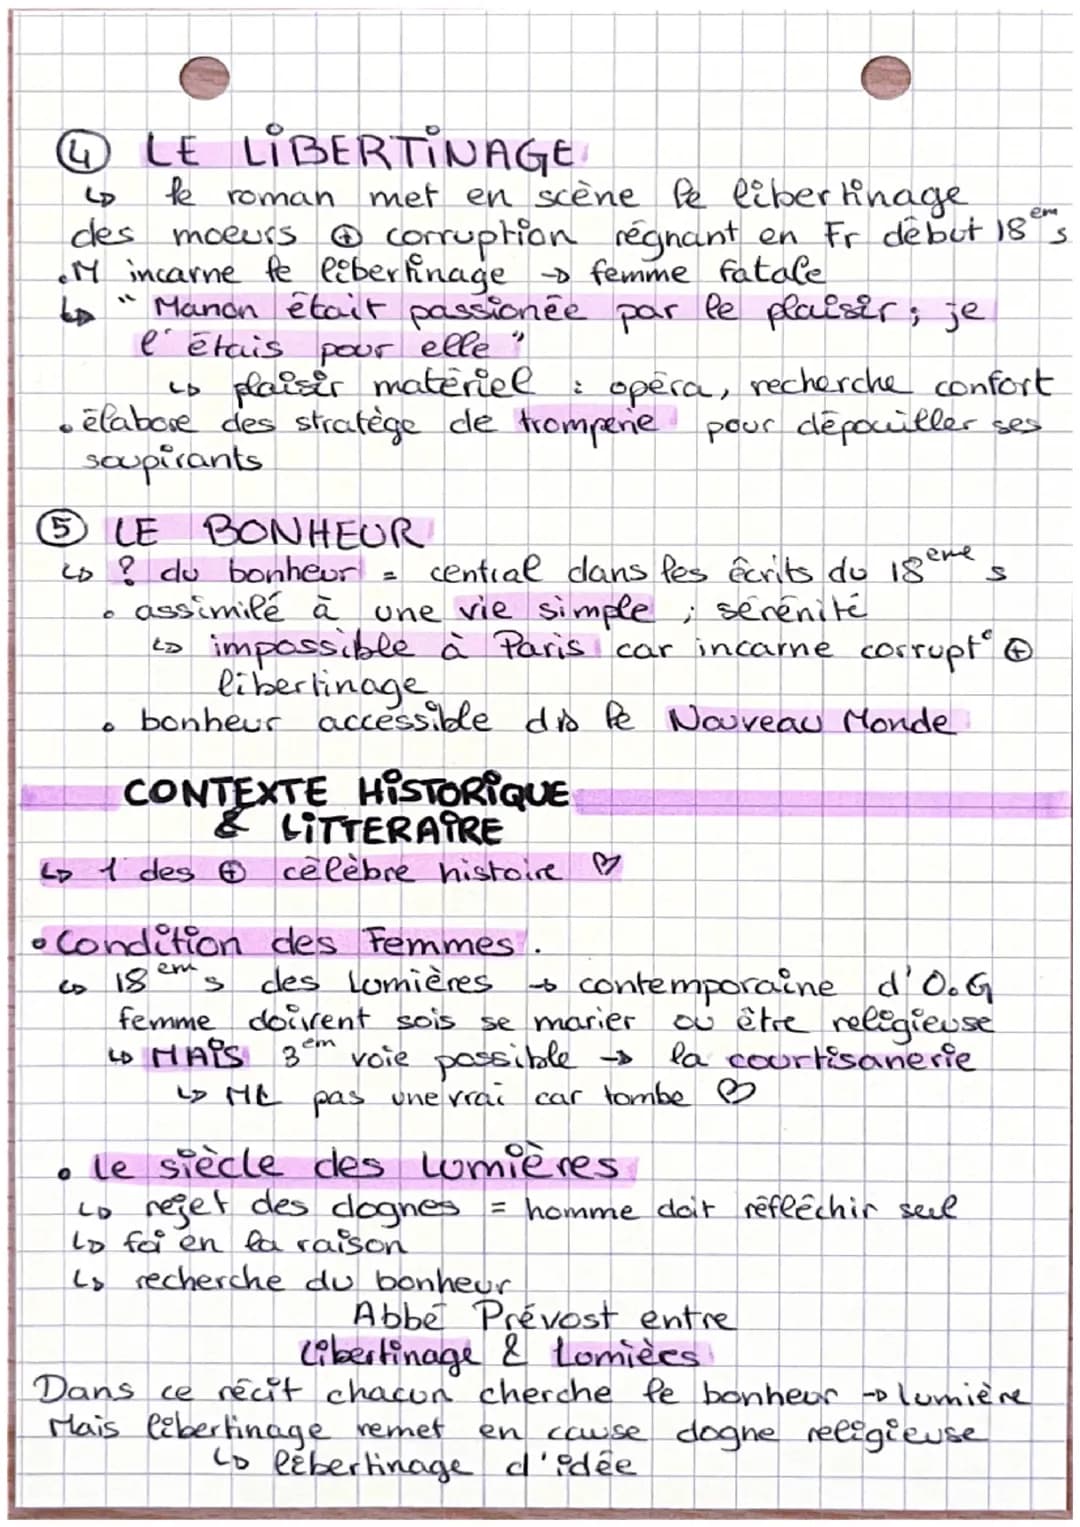 ④ LE LIBERTINAGE
↳ le roman met en scène le libertinage
des moeurs ⊕ corruption régnant en Fr début 18em s
. M incarne le libertinage → femme fatale
↳ "Manon était passionée par le plaisir ; je
l'étais pour elle"
↳ plaisir matériel : opéra, recherche confort
• élabore des stratège de tromperie pour dépouiller ses
soupirants
⑤ LE BONHEUR
↳ ? du bonheur = central dans les écrits du 18ème s
• assimilé à une vie simple ; sérénité
↳ impossible à Paris car incarne corrupt° ⊕
libertinage
• bonheur accessible ds le Nouveau Monde
CONTEXTE HISTORIQUE
& LITTERAIRE
↳ 1 des ⊕ célèbre histoire ♡
• Condition des Femmes.
↳ 18em s des Lumières → contemporaine d'O.G
femme doivent sois se marier ou être religieuse
↳ MAIS 3em voie possible → la courtisanerie
↳ ML pas une vrai car tombe ♡
• Le siècle des Lumières
↳ rejet des dognes = homme doit réfléchir seul
↳ foi en la raison
↳ recherche du bonheur
Abbé Prévost entre
Libertinage & Lumièes
Dans ce récit chacun cherche le bonheur → lumière
Mais libertinage remet en cause dogne religieuse
↳ libertinage d'idée